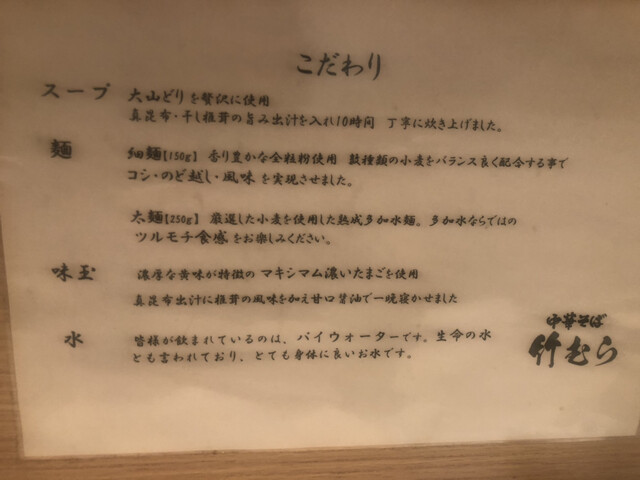 こだわり
スープ 大山どりを贅沢に使用
真昆布・干し椎茸の旨み出汁を入れ10時間 丁寧に炊き上げました。
麺 細麺【150g】 香り豊かな全粒粉使用 数種類の小麦をバランス良く配合する事で
コシ・のど越し・風味を実現させました。
太麺【250g】 厳選した小麦を使用した熟成多加水麺。多加水ならではの
ツルモチ食感をお楽しみください。
味玉 濃厚な黄味が特徴のマキシマム濃いたまごを使用
真昆布出汁に椎茸の風味を加え甘口醤油で一晩寝かせました
水 皆様が飲まれているのは、パイウォーターです。生命の水
とも言われており、とても身体に良いお水です。
中華そば
竹むら